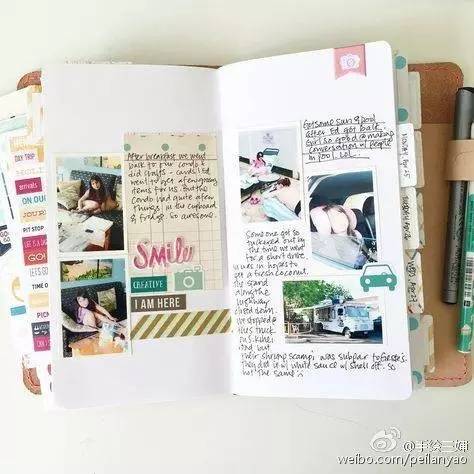 DAY TRIP
arrivals
ON OUR
PIT STOP
GO!
LET'S GO
After breakfast we went
back to our condo &
did crafts - cards! Ed
went to get a few grocery
items for us. But the
condo had quite a few
things in the cupboard
& fridge. So awesome.
SMiLE
CREATIVE
I AM HERE
Got some sun & pool
after Ed got back.
girl so good @ making
conversation w/ people
in pool. LOL.
Someone got so
tuckered out by
the time we went
for a short drive.
in hopes to
get a fresh coconut.
the stand
along the
highway
closed down.
we stopped @
truck
but
their shrimp scampi was subpar to
they did it w/ white sauce w/ shell off. so
not the same
weibo.com/peilanyao